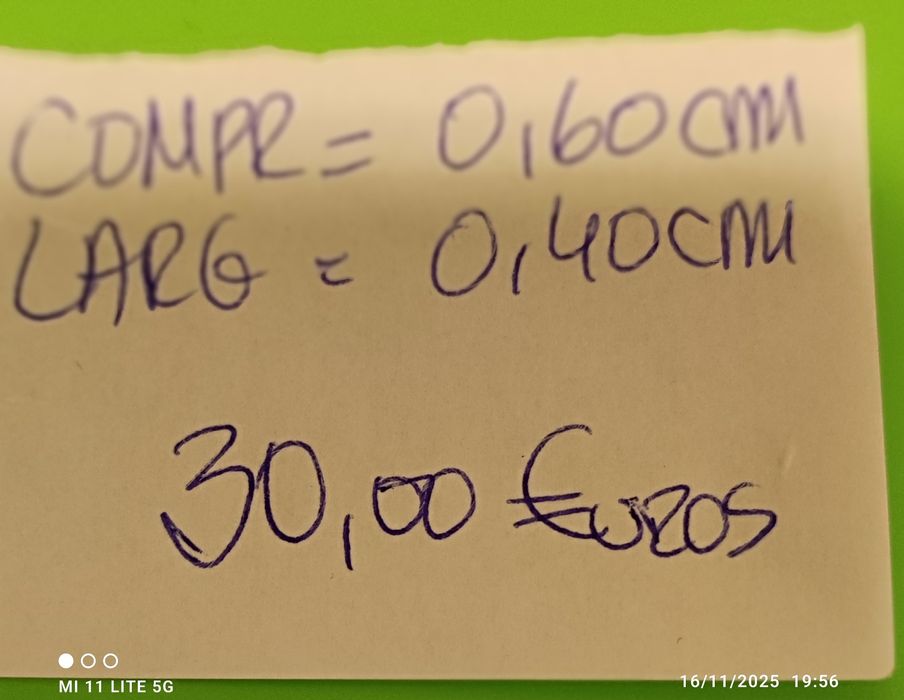 COMPR = 0,60 cm
LARG = 0,40 cm
30,00 €uros
MI 11 LITE 5G
16/11/2025 19:56